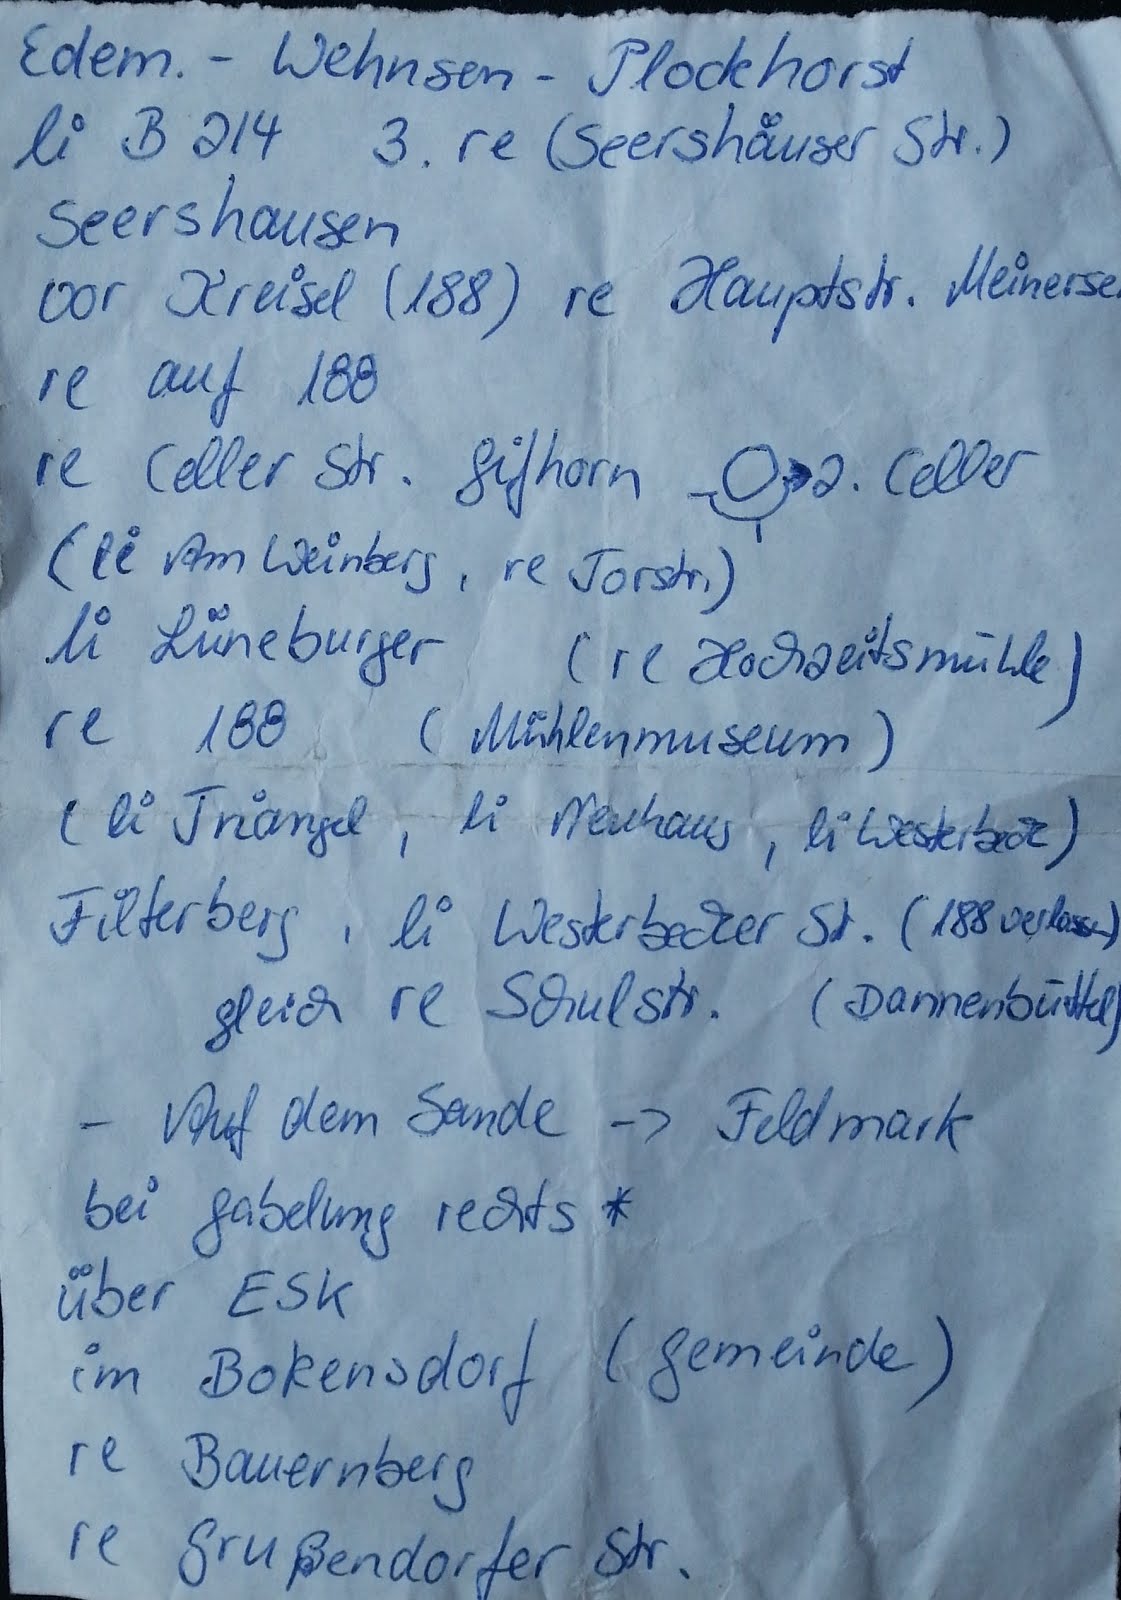 Edem. - Wehnsen - Plockhorst
li B 214 3. re (Seershäuser Str.)
Seershausen
vor Kreisel (188) re Hauptstr. Meinersen
re auf 188
re Celler Str. Gifhorn 2. Celler
(li Am Weinberg, re Torstr.)
li Lüneburger (re Hochzeitsmühle)
re 188 (Mühlenmuseum)
(li Triangel, li Neuhaus, li Westerbeck)
Filterberg, li Westerbecker St. (188 verlassen)
gleich re Schulstr. (Dannenbüttel)
- Auf dem Sande -> Feldmark
bei Gabelung rechts *
über ESK
im Bokensdorf (Gemeinde)
re Bauernberg
re Grußendorfer Str.